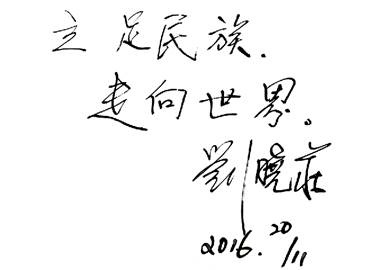 立足民族.
走向世界。
劉晓莊
2016.20/11